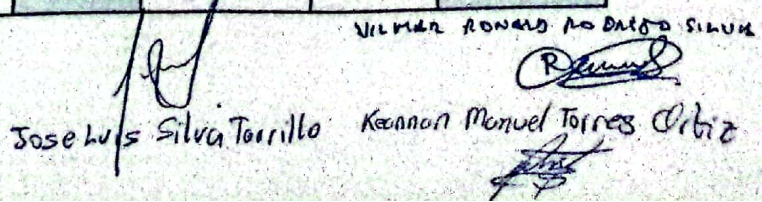 VILMER RONALD RODRIGO SILVA
Jose Luis Silva Torrillo
Keannan Manuel Torres Ortiz